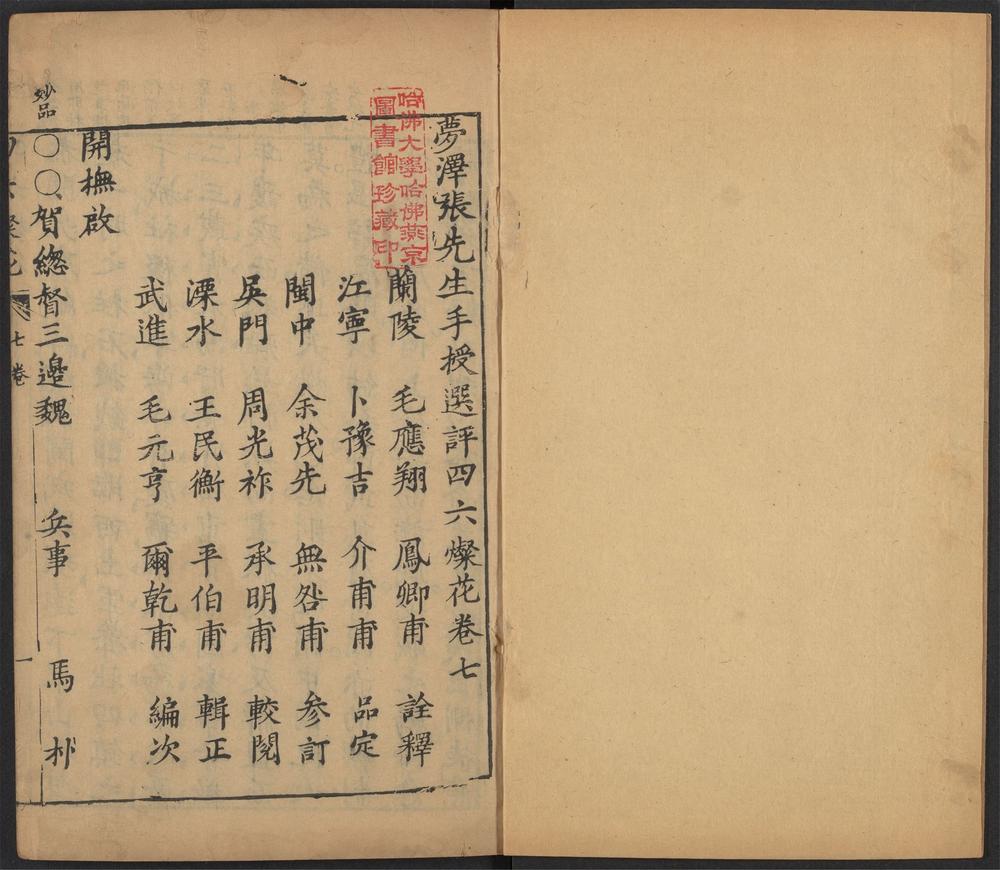 夢澤張先生手授選評四六燦花卷七
哈佛大學哈佛燕京
圖書館珍藏印
蘭陵 毛應翔 鳳卿甫 詮釋
江寧 卜豫吉 介甫甫 品定
閩中 余茂先 無咎甫 参訂
吳門 周光祚 承明甫 較閱
溧水 王民衡 平伯甫 輯正
武進 毛元亨 爾乾甫 編次
開撫啟
妙品
〇〇賀總督三邉魏 兵事 馬朴
七卷
一